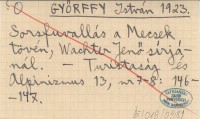 O GYÖRFFY István 1923.
Sorsfuvallás a Mecsek
tövén, Wachter Jenő sírjá-
nál. — Turistaság és
Alpinizmus 13, nr 7-8: 146-
-147.